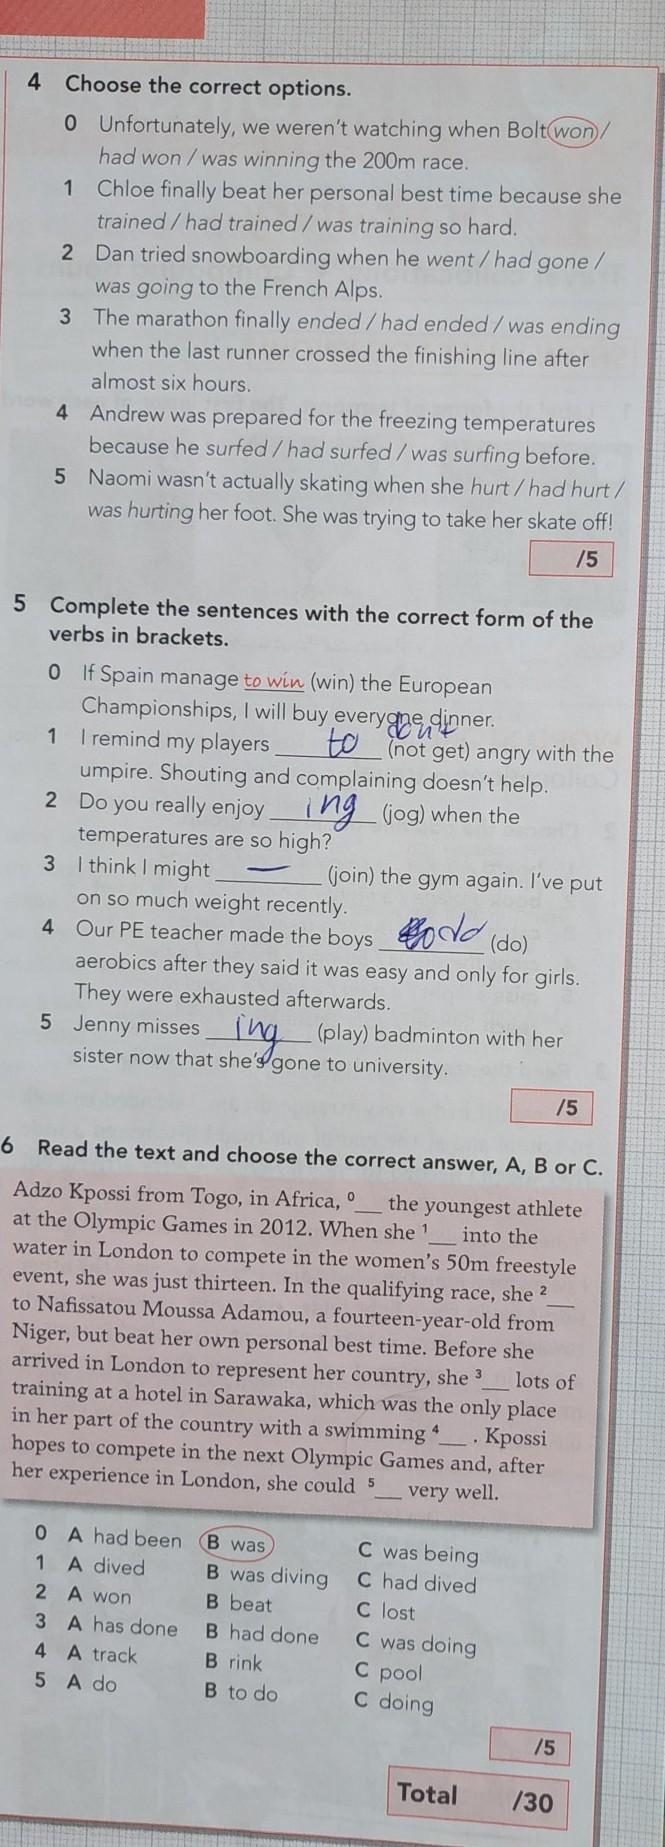 4 Choose the correct options.
0 Unfortunately, we weren't watching when Bolt won /
had won / was winning the 200m race.
1 Chloe finally beat her personal best time because she
trained / had trained / was training so hard.
2 Dan tried snowboarding when he went / had gone /
was going to the French Alps.
3 The marathon finally ended / had ended / was ending
when the last runner crossed the finishing line after
almost six hours.
4 Andrew was prepared for the freezing temperatures
because he surfed / had surfed / was surfing before.
5 Naomi wasn't actually skating when she hurt / had hurt /
was hurting her foot. She was trying to take her skate off!
/5
5 Complete the sentences with the correct form of the
verbs in brackets.
0 If Spain manage to win (win) the European
Championships, I will buy everyone dinner.
don't
1 I remind my players to (not get) angry with the
umpire. Shouting and complaining doesn't help.
2 Do you really enjoy ing (jog) when the
temperatures are so high?
3 I think I might — (join) the gym again. I've put
on so much weight recently.
4 Our PE teacher made the boys (do)
aerobics after they said it was easy and only for girls.
They were exhausted afterwards.
5 Jenny misses ing (play) badminton with her
sister now that she's gone to university.
/5
6 Read the text and choose the correct answer, A, B or C.
Adzo Kpossi from Togo, in Africa, 0__ the youngest athlete
at the Olympic Games in 2012. When she 1__ into the
water in London to compete in the women's 50m freestyle
event, she was just thirteen. In the qualifying race, she 2__
to Nafissatou Moussa Adamou, a fourteen-year-old from
Niger, but beat her own personal best time. Before she
arrived in London to represent her country, she 3__ lots of
training at a hotel in Sarawaka, which was the only place
in her part of the country with a swimming 4__ . Kpossi
hopes to compete in the next Olympic Games and, after
her experience in London, she could 5__ very well.
0 A had been B was C was being
1 A dived B was diving C had dived
2 A won B beat C lost
3 A has done B had done C was doing
4 A track B rink C pool
5 A do B to do C doing
/5
Total /30